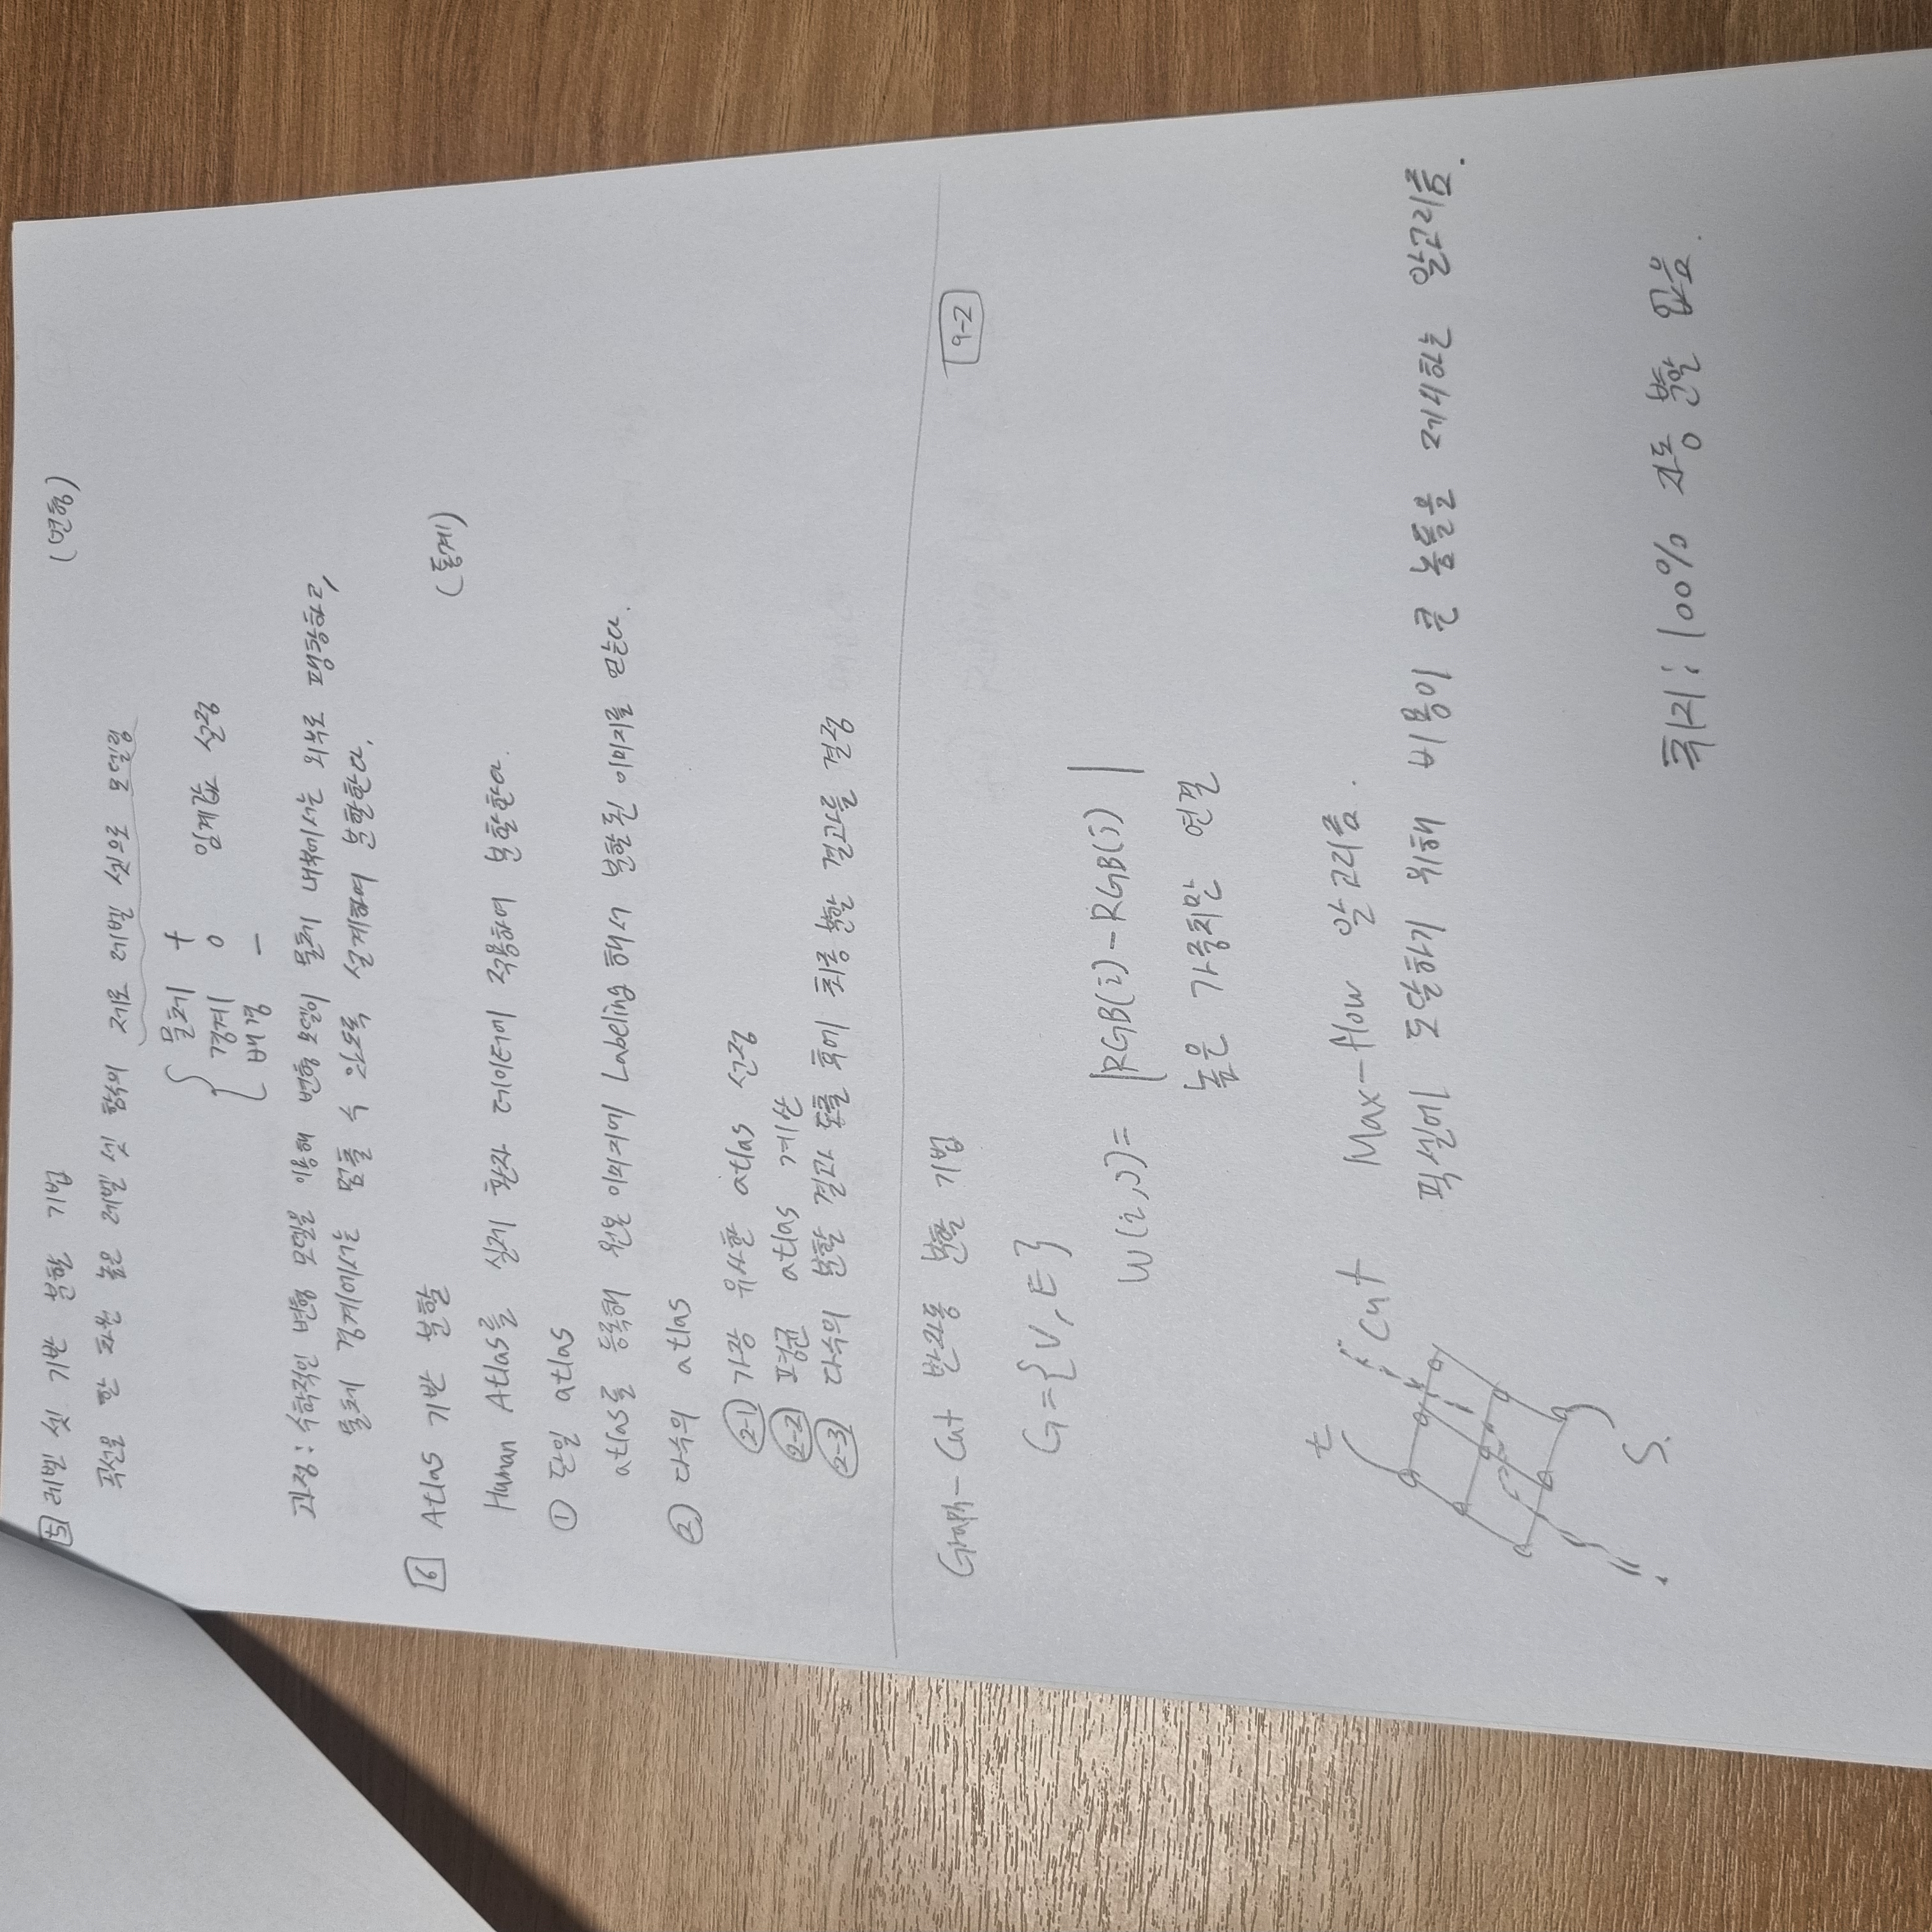 5 레벨 셋 기반 분할 기법 (변형)
곡선을 한 차원 높은 레벨 셋 함수의 제로 레벨 셋으로 모델링
물체 +
경계 0 임계값 설정
배경 -
과정 : 수학적인 변형 모델을 이용해 변형 모델이 물체 내부에서는 외부로 팽창하고,
물체 경계에서는 멈출 수 있도록 설계하여 분할한다.
6 Atlas 기반 분할 (통계)
Human Atlas를 실제 환자 데이터에 적용하여 분할한다.
① 단일 atlas
atlas를 등록해 원본 이미지에 Labeling 해서 분할된 이미지를 얻는다.
② 다수의 atlas
2-1 가장 유사한 atlas 선정
2-2 평균 atlas 계산
2-3 다수의 분할 결과 도출 후에 최종 분할 결과를 결정
Graph-Cut 반자동 분할 기법 9-2
G={V, E}
W(i,j)= |RGB(i)-RGB(j)|
높은 가중치만 연결
t
cut Max-flow 알고리즘.
픽셀에 도달하기 위해 비용이 큰 놈들을 제외하는 알고리즘.
S.
취지 : 100% 자동 분할 없음.